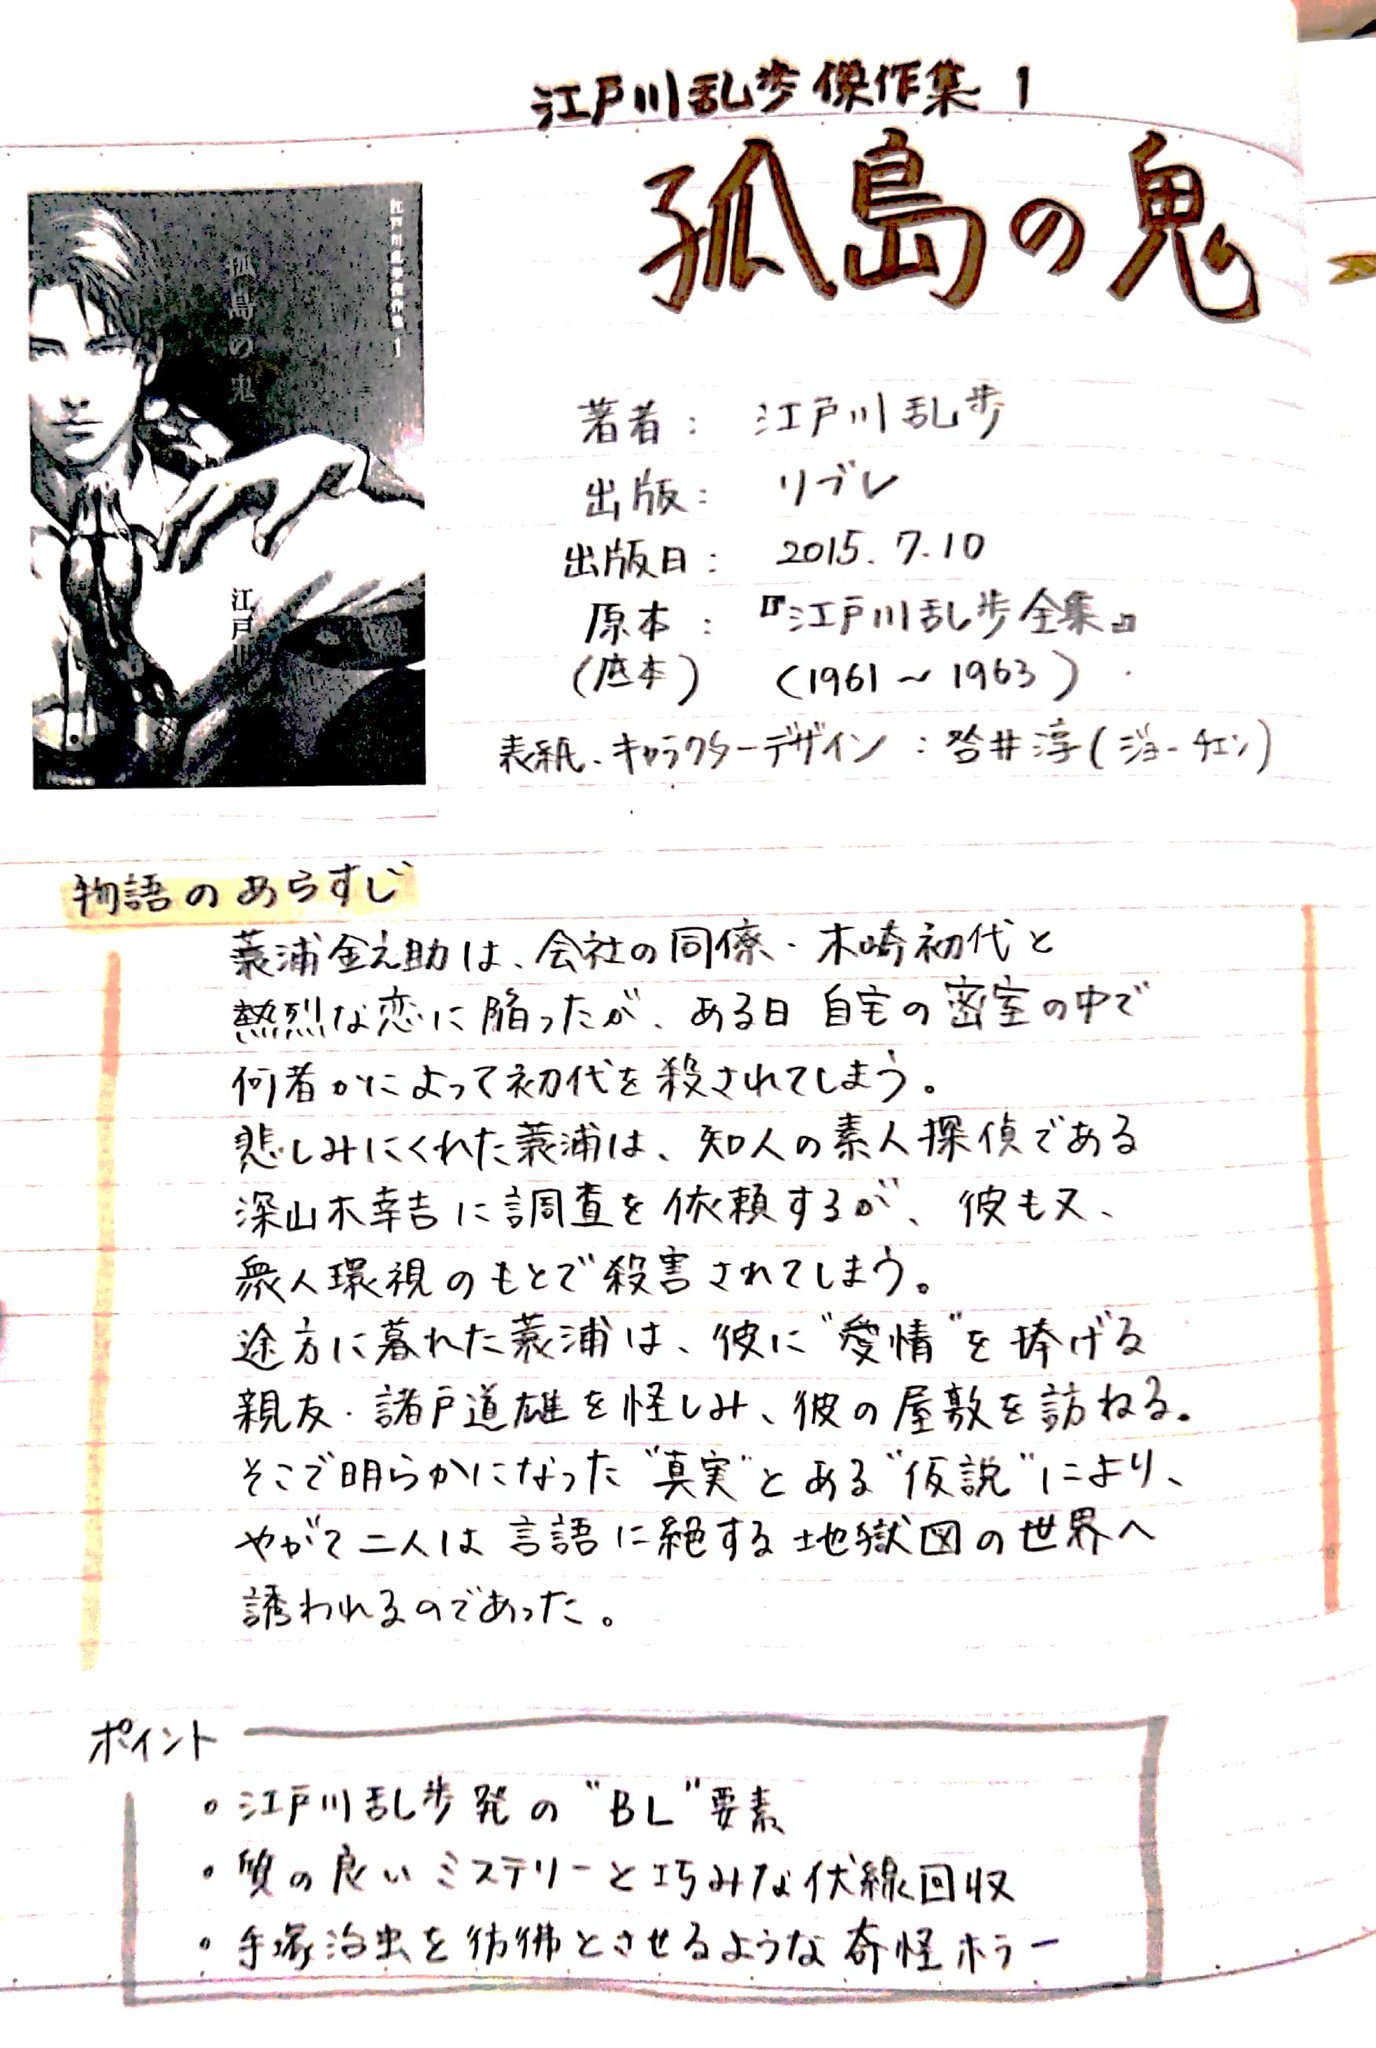 江戸川乱歩傑作集 1
孤島の鬼
江戸川乱歩傑作集 1
孤島の鬼
江戸川
著者： 江戸川乱歩
出版： リブレ
出版日： 2015.7.10
原本： 『江戸川乱歩全集』
(底本) (1961〜1963)
表紙、キャラクターデザイン：咎井淳(ジョーチェン)
物語のあらすじ
蓑浦金之助は、会社の同僚・木崎初代と
熱烈な恋に陥ったが、ある日 自宅の密室の中で
何者かによって初代を殺されてしまう。
悲しみにくれた蓑浦は、知人の素人探偵である
深山木幸吉に調査を依頼するが、彼も又、
衆人環視のもとで殺害されてしまう。
途方に暮れた蓑浦は、彼に"愛情"を捧げる
親友・諸戸道雄を怪しみ、彼の屋敷を訪ねる。
そこで明らかになった"真実"とある"仮説"により、
やがて二人は言語に絶する地獄図の世界へ
誘われるのであった。
ポイント
・江戸川乱歩発の"BL"要素
・質の良いミステリーと巧みな伏線回収
・手塚治虫を彷彿とさせるような奇怪ホラー